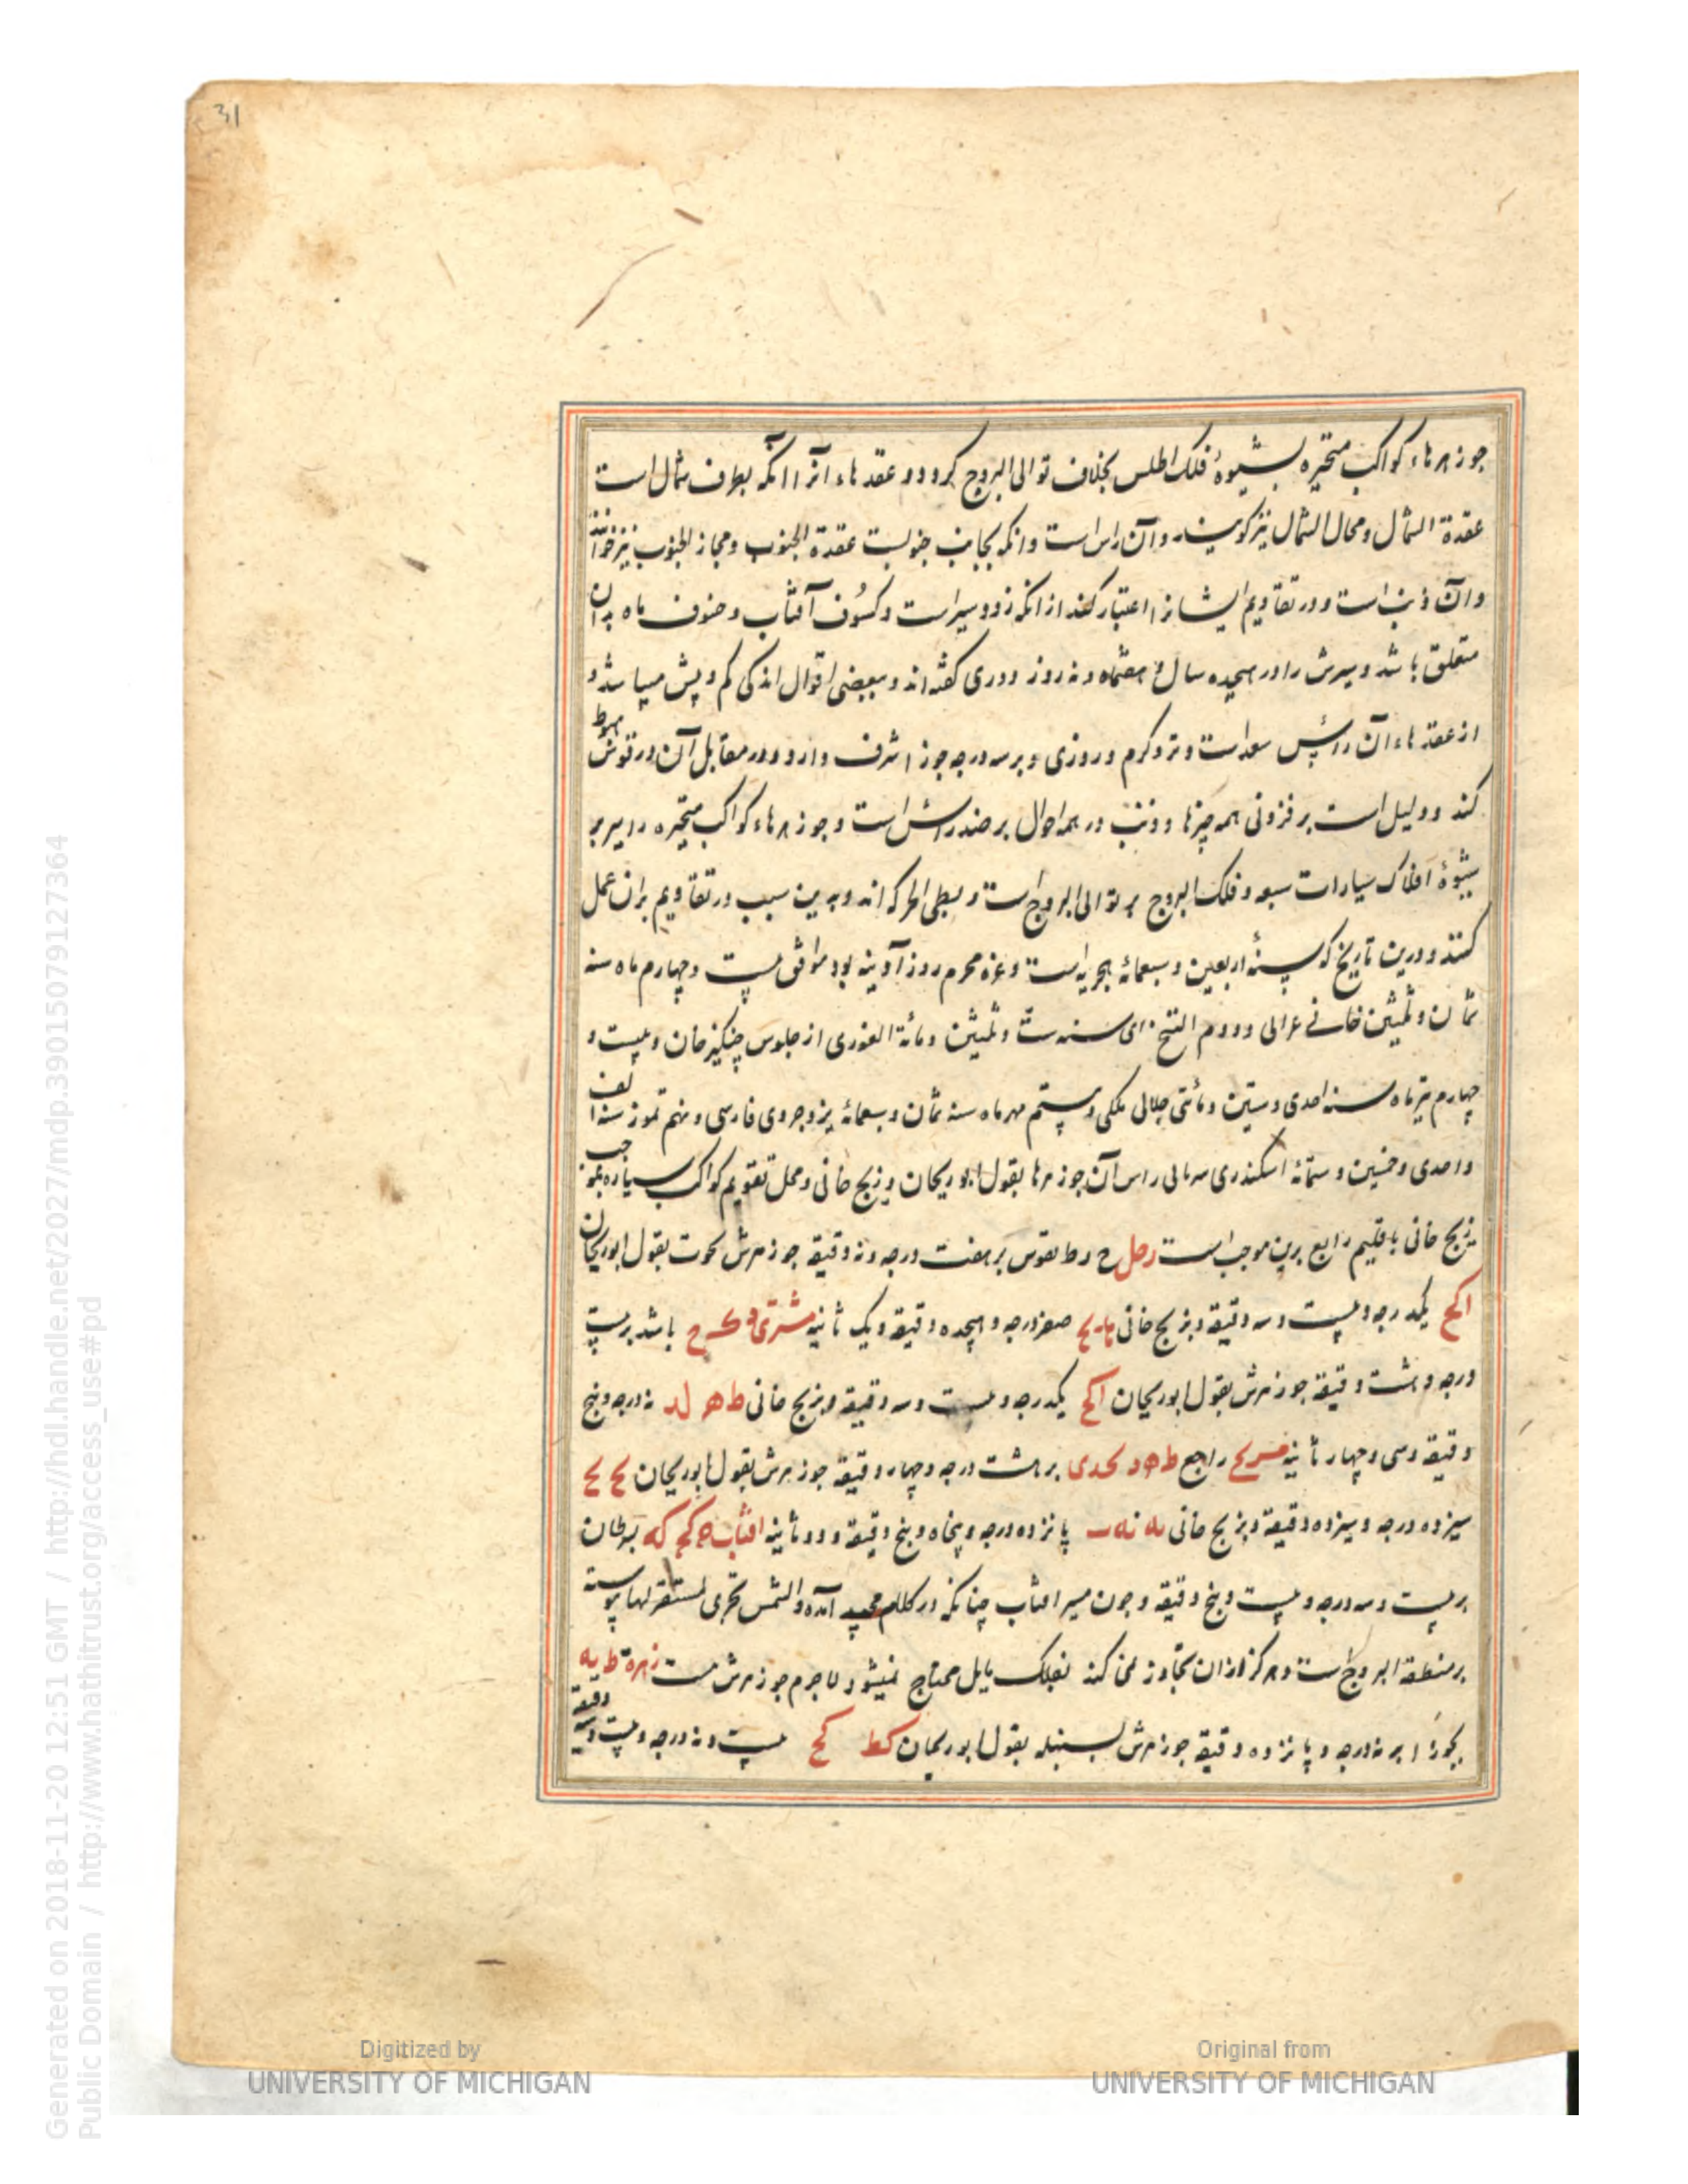 31
جوزهرهاء کواکب متحیره بشیوهٔ فلک اطلس بخلاف توالی البروج کردد و عقدهاء آنرا انکه بطرف شمال است
عقدة الشمال و مجاز الشمال نیز کویند و آن راس است و انکه بجانب جنوبست عقدة الجنوب و مجاز الجنوب نیز خوانند
و آن ذنب است و در تقاویم ایشانرا اعتبار کنند از انکه زود سیر است و کسوف آفتاب و خسوف ماه بدان
متعلق باشد و سیرش را در هیجده سال و هفتماه و نه روز دوری کفته‌اند و ببعضی اقوال اندکی کم و بیش میباشد و
از عقدهاء آن راس سعد است و نر و کرم و روزی و بر سه درجه جوزا شرف دارد و در مقابل آن در قوس هبوط
کند و دلیل است بر فزونی همه چیزها و ذنب در همه احوال بر ضد راس است و جوزهرهاء کواکب متحیره را سیر بر
شیوهٔ افلاک سیارات سبعه و فلک البروج بر توالی البروج است و بطی الحرکه‌اند و بدین سبب در تقاویم بران عمل
کنند و درین تاریخ که سنهٔ اربعین و سبعمائهٔ هجریه است و غره محرم روز آدینه بود موافق بیست و چهارم ماه سنه
ثمان و ثلثین خانی غرالی و دوم التنج ای سنه ست و ثلثین و مائة الغوری از جلوس چنکیز خان و بیست و
چهارم تیرماه سنه احدی و ستین و مائتی جلالی ملکی و بیستم مهرماه سنه ثمان و سبعمائهٔ یزدجردی فارسی و نهم تموز سنه الف
و احدی و خمسین و ستمائهٔ اسکندری سریانی راس آن جوزهرها بقول ابوریحان و زیج خانی و محل تقویم کواکب سیاره بموجب
زیج خانی باقلیم رابع برین موجب است زحل ح ر ط بقوس بر هفت درجه و نه دقیقه جوزهرش بحوت بقول ابوریحان
ا کح یکدرجه و بیست و سه دقیقه و بزیج خانی صفر درجه و هیجده دقیقه و یک ثانیه مشتری باشد بر بیست
درجه و هشت دقیقه جوزهرش بقول ابوریحان ا کح یکدرجه و بیست و سه دقیقه و بزیج خانی ط ه لد نه درجه و پنج
دقیقه و سی و چهار ثانیه مریخ راجع بجدی بر هشت درجه و چهار دقیقه جوزهرش بقول ابوریحان یح یح
سیزده درجه و سیزده دقیقه و بزیج خانی یه نه ب پانزده درجه و پنجاه و پنج دقیقه و دو ثانیه افتاب ج کح که بسرطان
بر بیست و سه درجه و بیست و پنج دقیقه و چون مسیر افتاب چنانکه در کلام مجید آمده والشمس تجری لمستقر لها پیوسته
بر منطقه البروج است و هرکز ازان تجاوز نمی کند بفلک مایل محتاج نمیشود لاجرم جوزهرش نیست زهره ط یه
بجوزا بر نه درجه و پانزده دقیقه جوزهرش بسنبله بقول ابوریحان کط کح بیست و نه درجه و بیست و سه دقیقه
Generated on 2018-11-20 12:51 GMT / http://hdl.handle.net/2027/mdp.39015079127364
Public Domain / http://www.hathitrust.org/access_use#pd
Digitized by
UNIVERSITY OF MICHIGAN
Original from
UNIVERSITY OF MICHIGAN